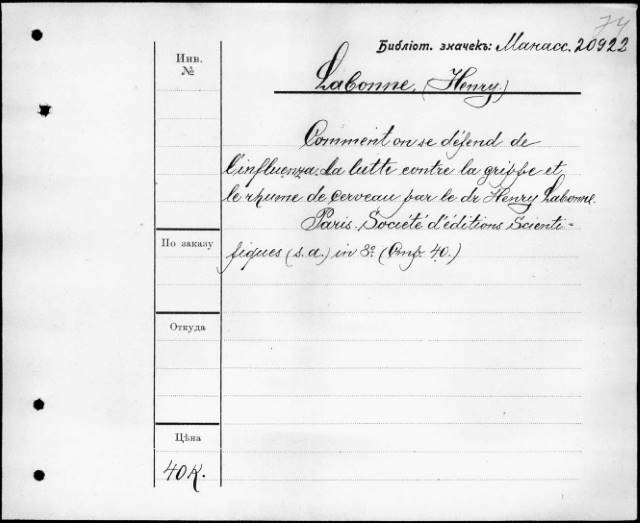 74
Библіот. значекъ: Манасс. 20922
Инв.
№
Labonne, (Henry.)
Comment on se défend de
l'influenza. La lutte contre la grippe et
le rhume de cerveau par le dr Henry Labonne.
Paris. Société d'éditions Scienti-
fiques (s. a.) in 8º (Стр. 40.)
По заказу
Откуда
Цѣна
40 к.